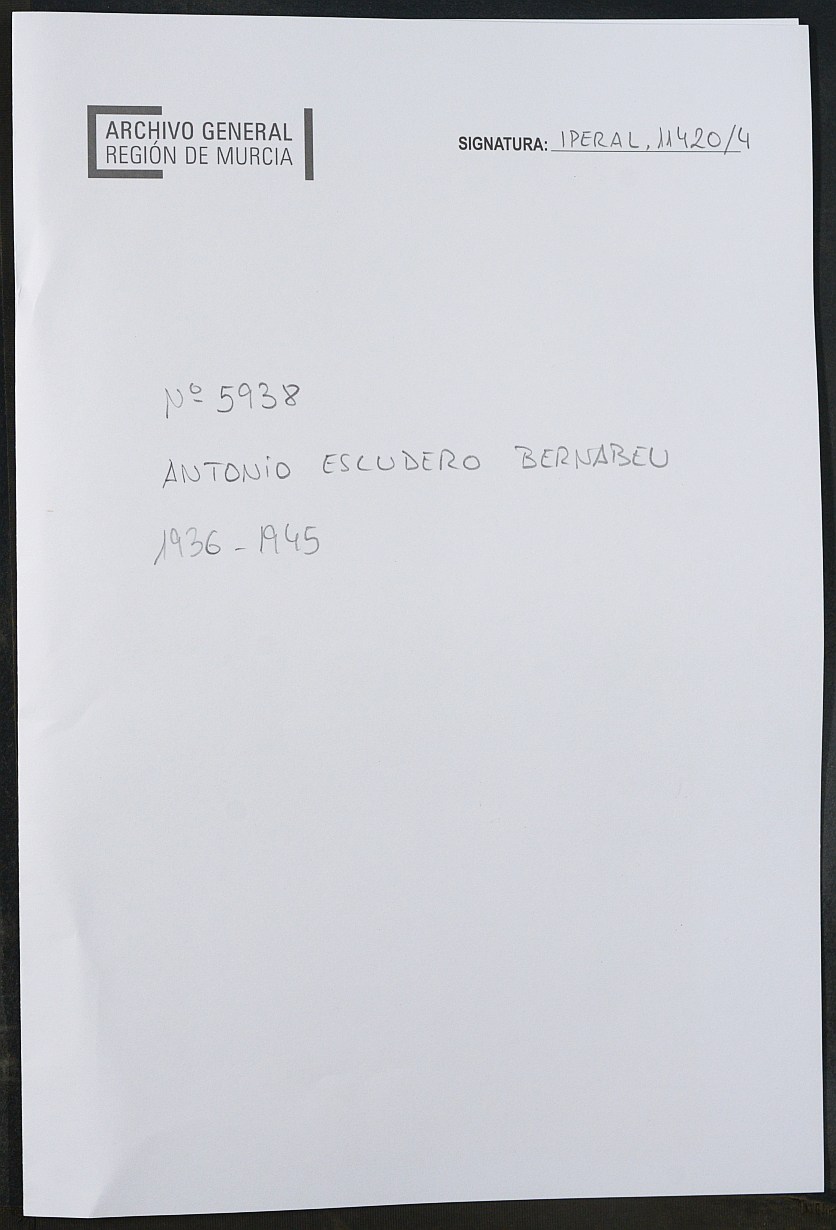 ARCHIVO GENERAL
REGIÓN DE MURCIA
SIGNATURA: IPERAL, 11420/4
Nº 5938
ANTONIO ESCUDERO BERNABEU
1936 - 1945